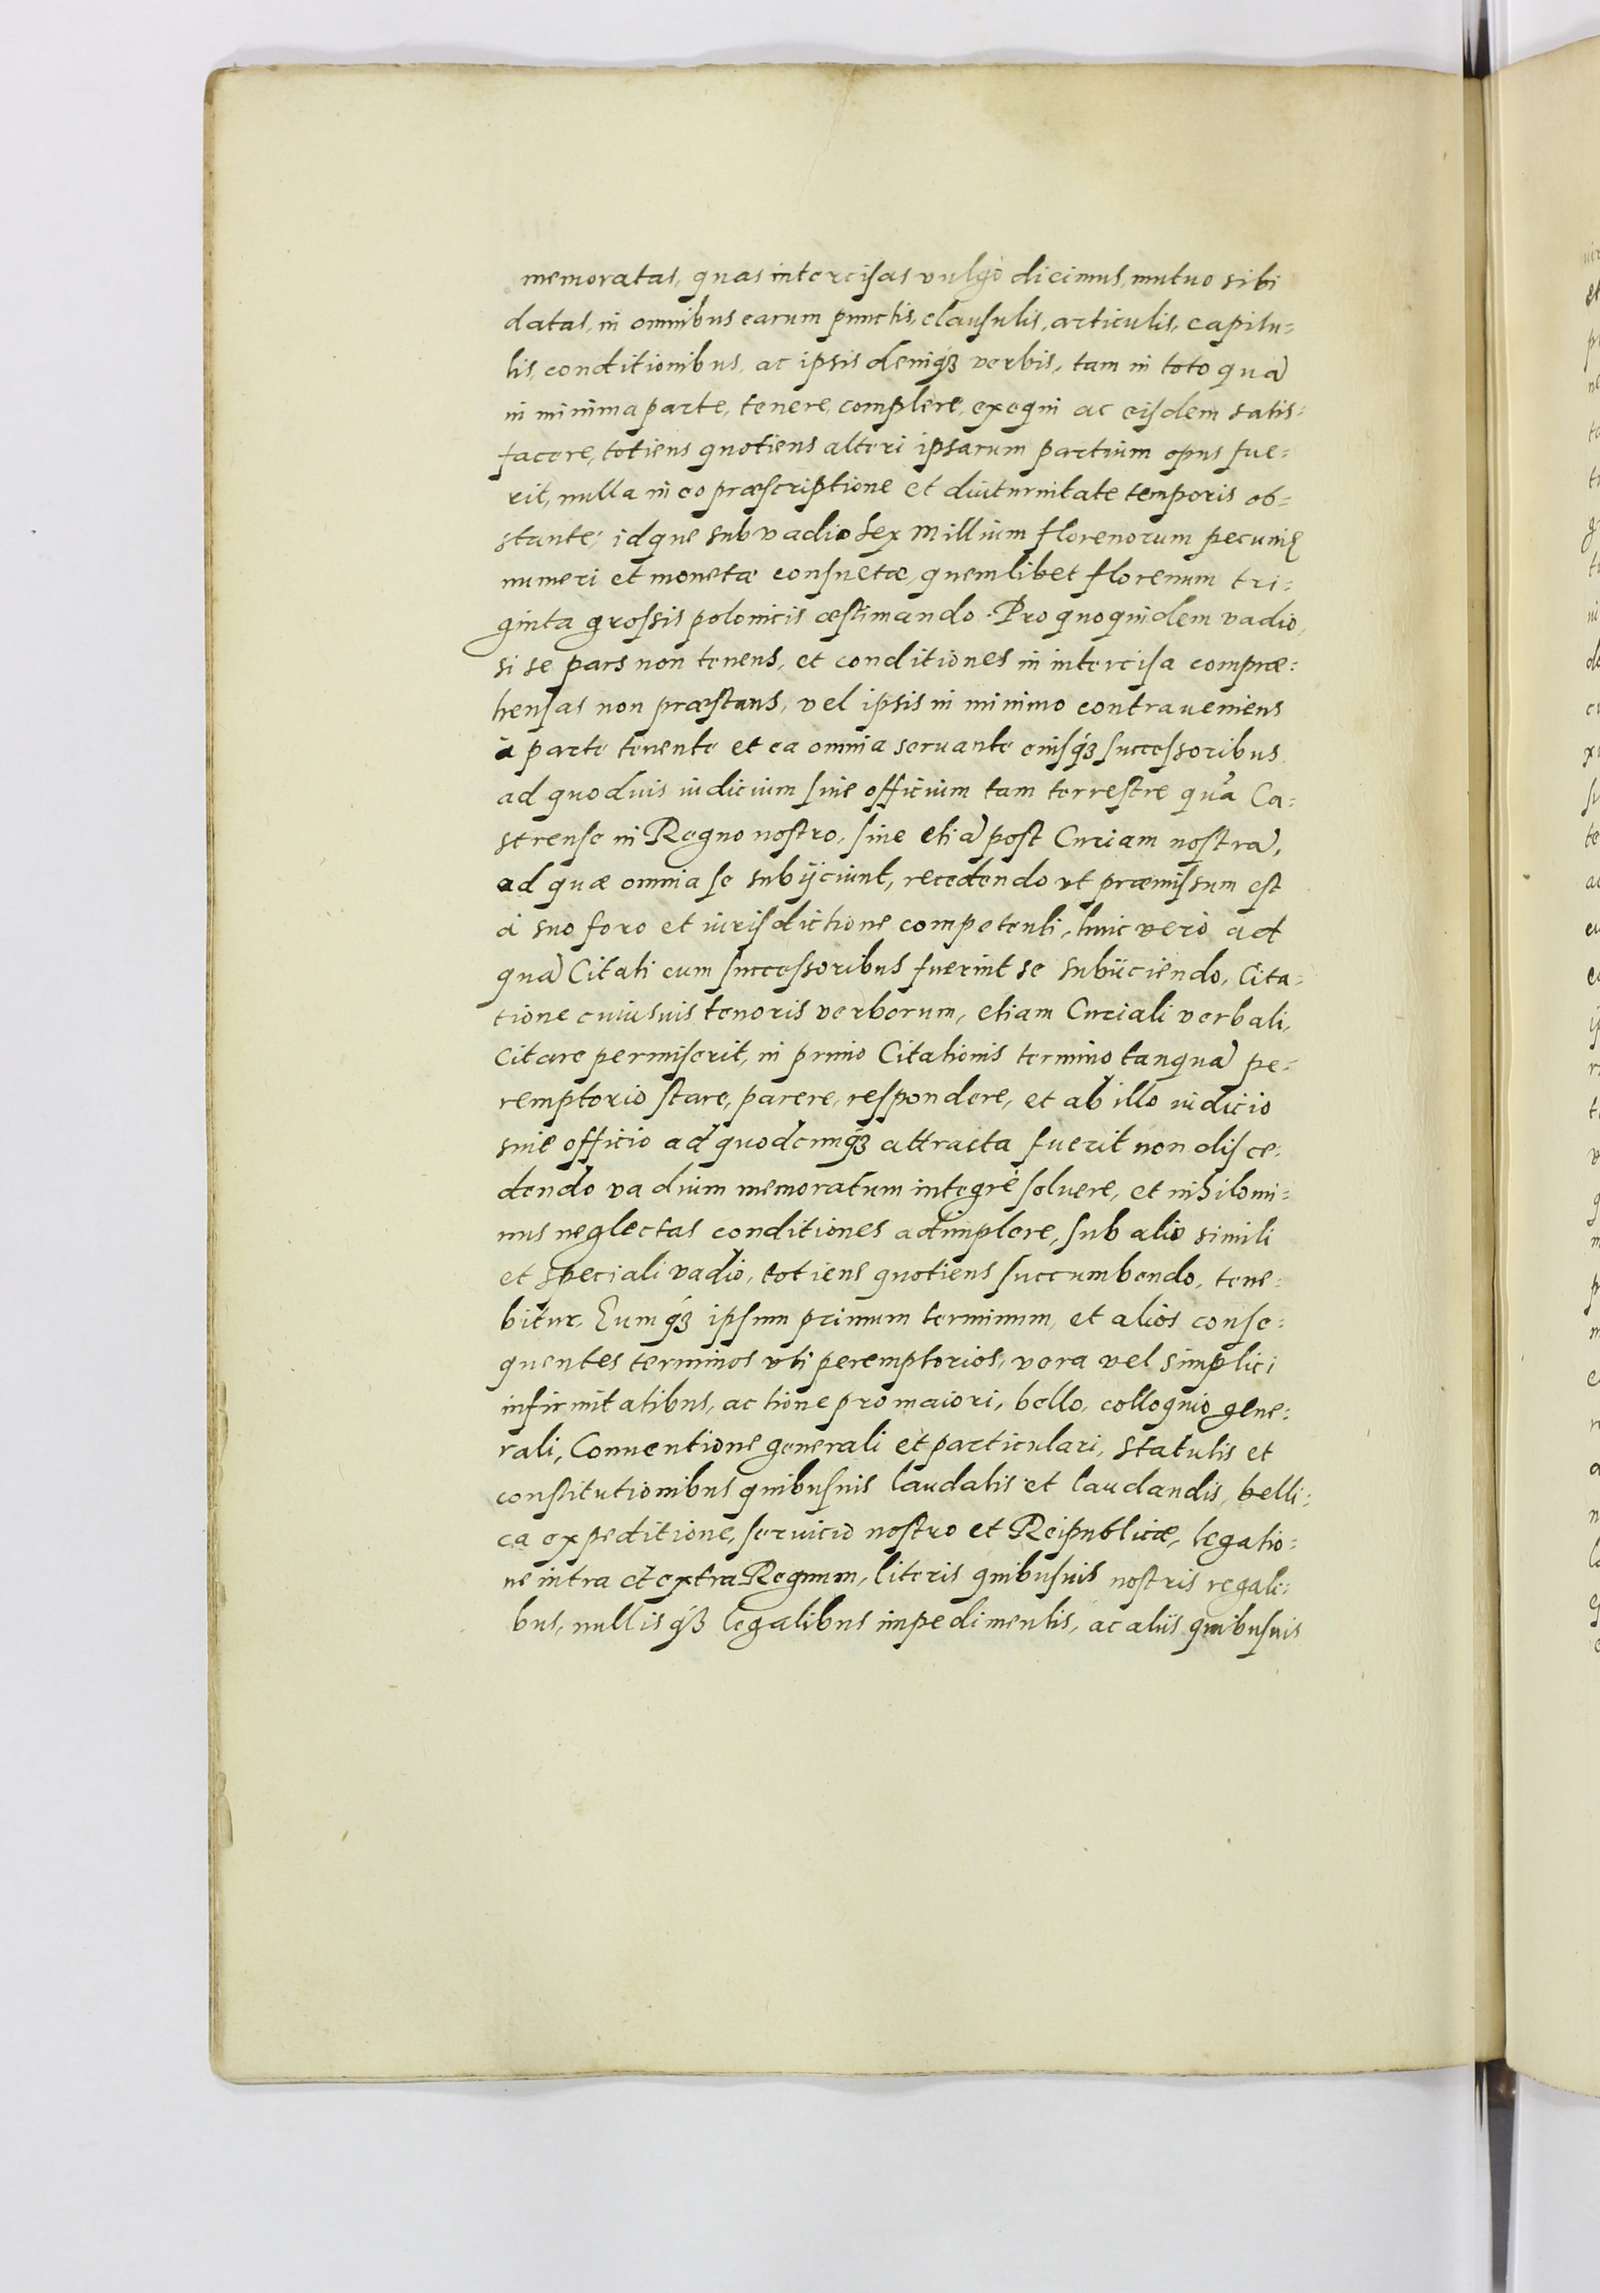 memoratas, quas intercisas vulgò dicimus, mutuo sibi
datas, in omnibus earum punctis, clausulis, articulis, capitu=
lis, conditionibus, ac ipsis deniq́ʒ verbis, tam in toto quã
in minima parte, tenere, complere, exequi ac eisdem satis=
facere, totiens quotiens alteri ipsarum partium opus fue=
rit, nulla in eo præscriptione et diuturnitate temporis ob=
stante; idque sub vadio Sex Millium florenorum pecunię
numeri et monetæ consuetæ, quemlibet florenum tri=
ginta grossis polonicis æstimando. Pro quoquidem vadio,
si se pars non tenens, et conditiones in intercisa compræ=
hensas non præstans, vel ipsis in minimo contraueniens
à parte tenente et ea omnia seruante eiusq́ʒ successoribus
ad quoduis iudicium siue officium tam terrestre quã Ca=
strense in Regno nostro, siue etiã post Curiam nostrã,
ad quæ omnia se subÿciunt, recedendo vt præmissum est
à suo foro et iurisdictione competenti, huic verò ad
quã Citati cum successoribus fuerint se subÿciendo, Cita=
tione cuiusuis tenoris verborum, etiam Curiali verbali,
Citare permiserit, in primo Citationis termino tanquã pe=
remptorio stare, parere, respondere, et ab illo iudicio
siue officio ad quodcunq́ʒ attracta fuerit non disce=
dendo vadium memoratum integrè soluere, et nihilomi=
nus neglectas conditiones adimplere, sub alio simili
et speciali vadio, totiens quotiens succumbendo, tene=
bitur. Eumq́ʒ ipsum primum terminum, et alios conse=
quentes terminos vti peremptorios, vera vel simplici
infirmitatibus, actione pro maiori, bello, colloquio gene=
rali, Conuentione generali et particulari, statutis et
constitutionibus quibusuis laudatis et laudandis, belli=
ca expeditione, seruicio nostro et Reipublicæ, legatio=
ne intra et extra Regnum, literis quibusuis nostris regali=
bus, nullisq́ʒ legalibus impedimentis, ac aliis quibusuis